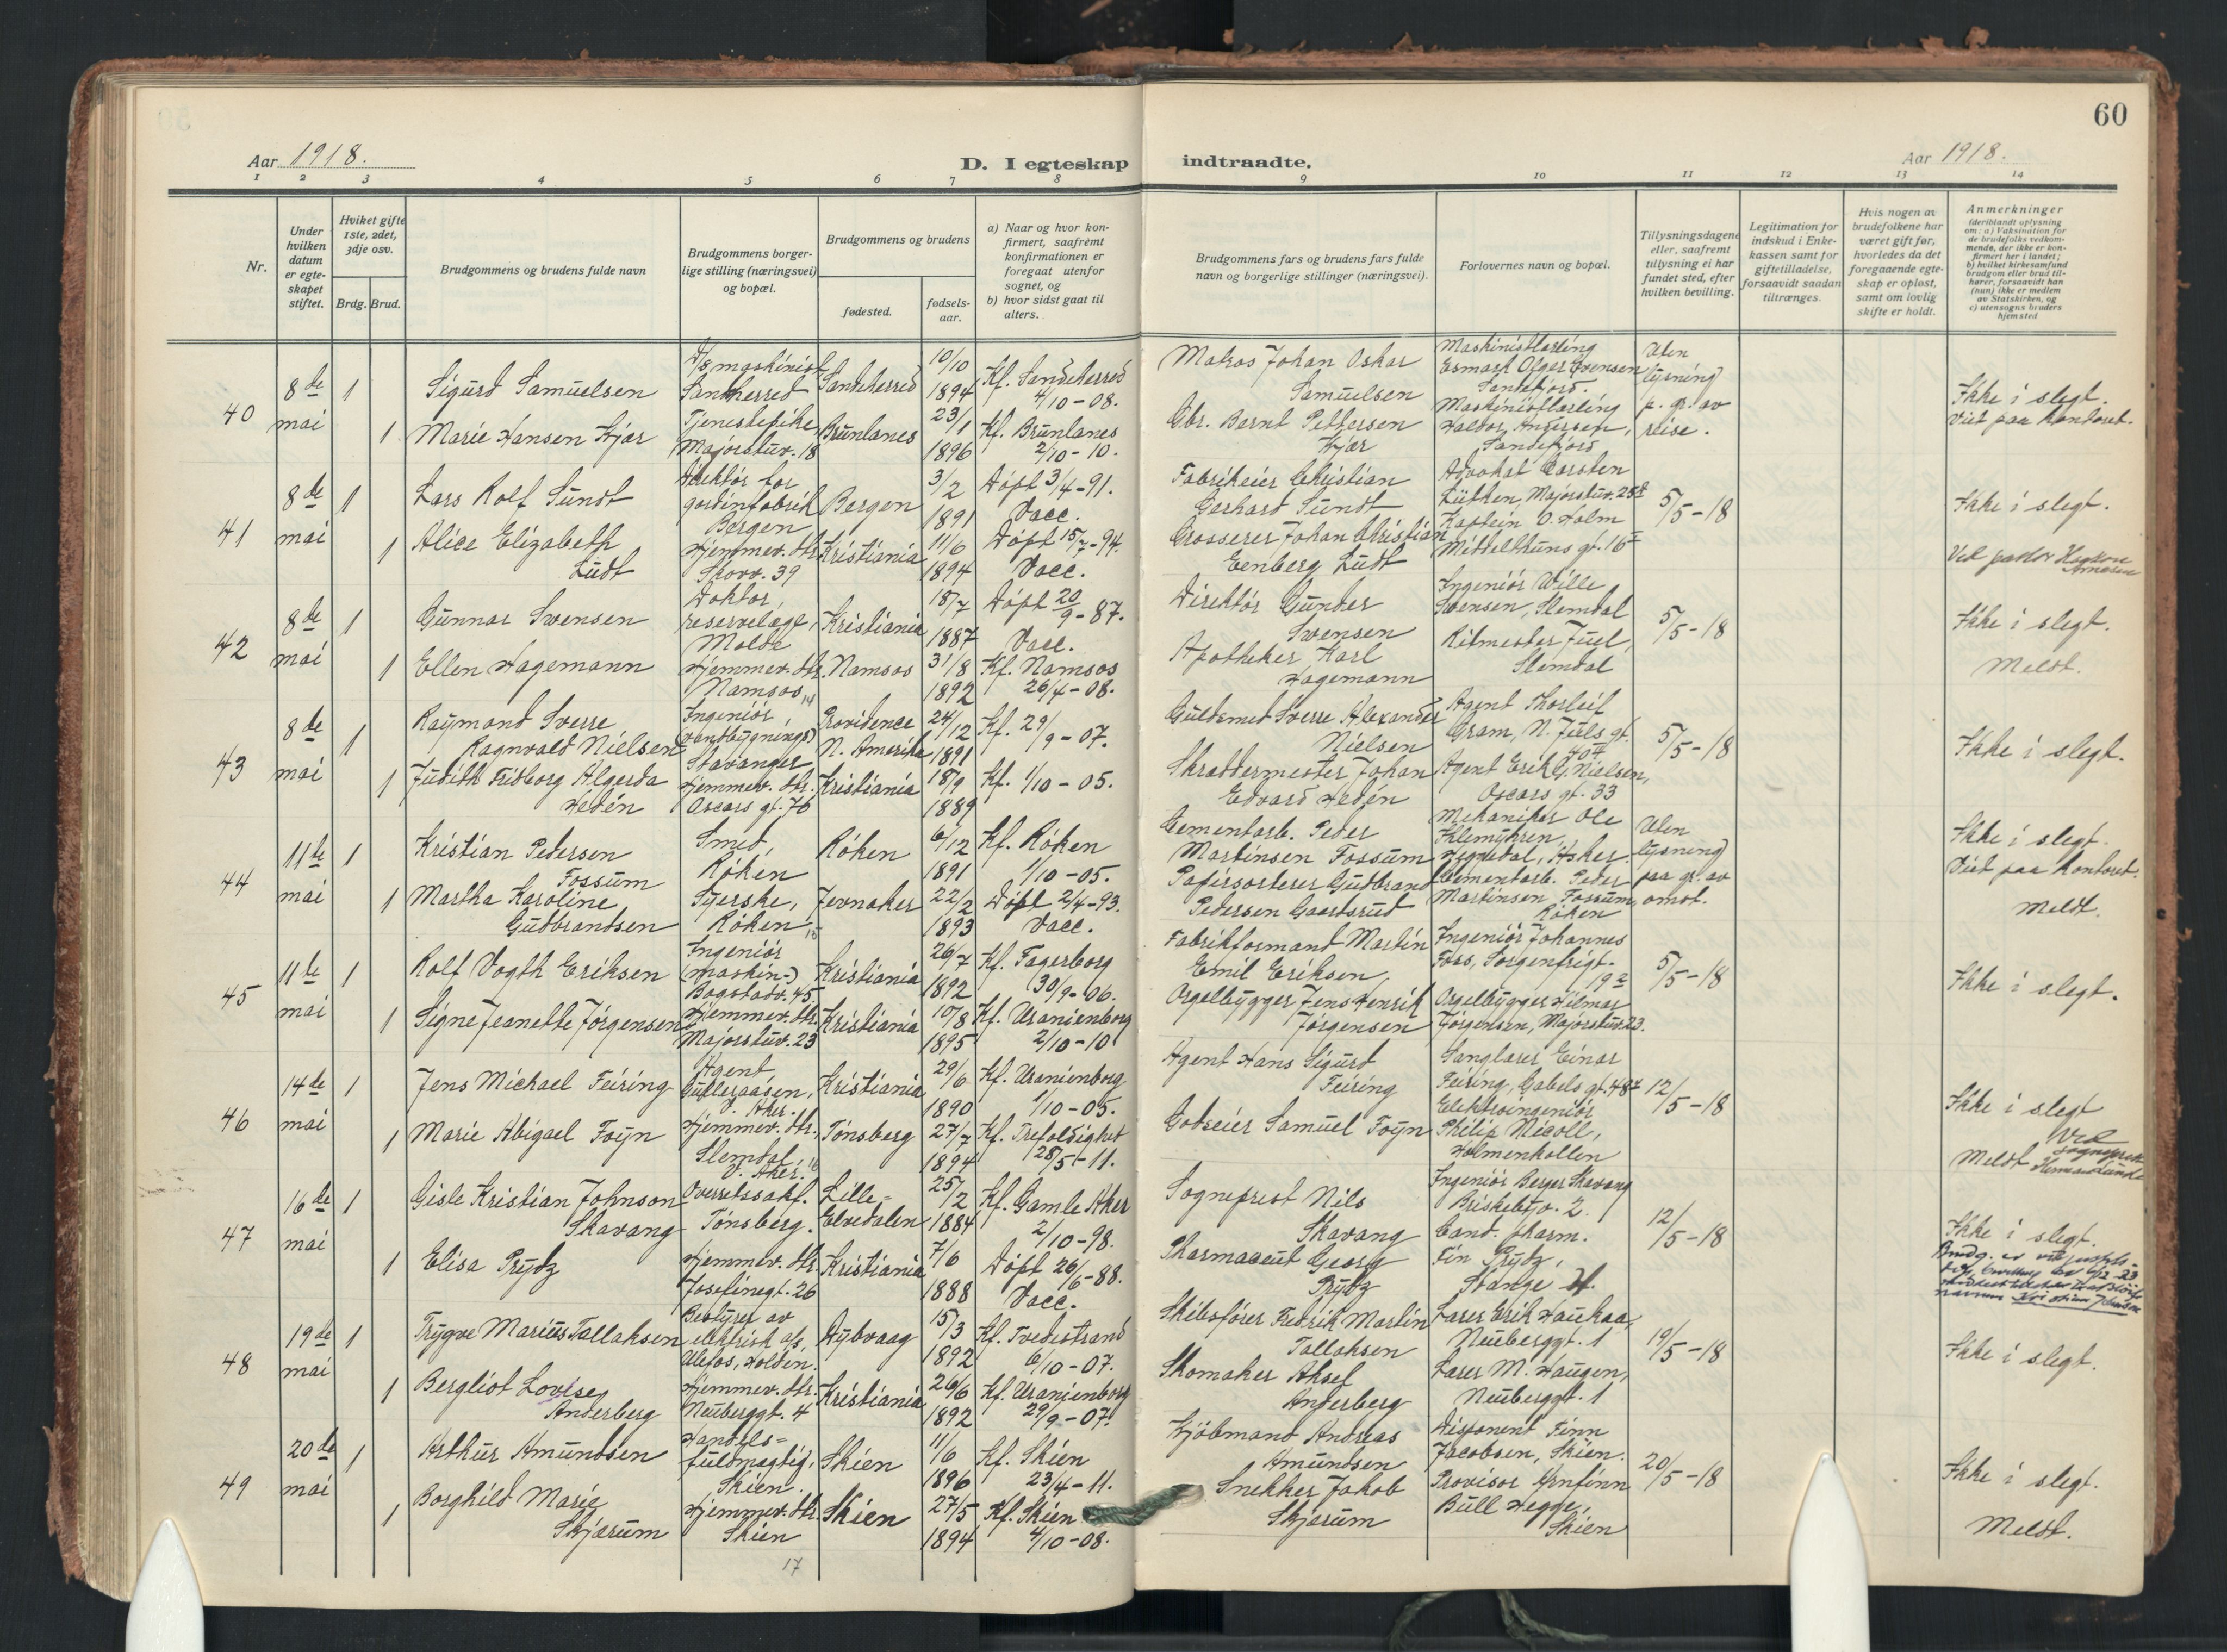 60
Aar 1918.
D. I egteskap indtraadte.
Aar 1918.
1 2 3 4 5 6 7 8 9 10 11 12 13 14
Nr.
Under hvilken datum er egte-skapet stiftet.
Hvilket gifte 1ste, 2det, 3dje osv.
Brdg. Brud.
Brudgommens og brudens fulde navn
Brudgommens borger-lige stilling (næringsvei) og bopæl.
Brudgommens og brudens
fødested.
fødsels-aar.
a) Naar og hvor kon-firmert, saafremt konfirmationen er foregaat utenfor sognet, og
b) hvor sidst gaat til alters.
Brudgommens fars og brudens fars fulde navn og borgerlige stillinger (næringsvei).
Forlovernes navn og bopæl.
Tillysningsdagene eller, saafremt tillysning ei har fundet sted, efter hvilken bevilling.
Legitimation for indskud i Enke-kassen samt for giftetilladelse, forsaavidt saadan tiltrænges.
Hvis nogen av brudefolkene har været gift før, hvorledes da det foregaaende egte-skap er opløst, samt om lovlig skifte er holdt.
Anmerkninger
(deriblandt oplysning om: a) Vaksination for de brudefolks vedkom-mende, der ikke er kon-firmert her i landet; b) hvilket kirkesamfund brudgom eller brud til-hører, forsaavidt han (hun) ikke er medlem av Statskirken, og c) utensogns bruders hjemsted
40 8de mai
1 Sigurd Samuelsen
D/s maskinist, Sandherred
Sandeherred
10/10 1894
Kf. Sandeherred 4/10-08.
Matros Johan Oskar Samuelsen
Maskinistlærling Esmark Olger Evensen Sandefjord.
Uten lysning p. gr. av reise.
Ikke i slegt.
Viet paa kontoret.
1 Marie Hansen Kjær
Tjenestepike, Majorstuv. 18
Brunlanes
23/1 1896
Kf. Brunlanes 2/10-10.
Gbr. Bernt Pettersen Kjær
Maskinistlærling Haldor Andersen, Sandefjord
41 8de mai
1 Lars Rolf Sundt
Direktør for gardinfabrik Bergen
Bergen
3/2 1891
Døpt 3/4-91. Vacc.
Fabrikeier Christian Gerhard Sundt
Advokat Carsten Lüthen, Majorstuv. 25
5/5-18
Ikke i slegt.
1 Alice Elizabeth Ludt
Hjemmev. dtr. Skovv. 39
Kristiania
11/6 1894
Døpt 15/7-94. Vacc.
Grosserer Johan Christian Eenberg Ludt
Kaptein O. Holm Middelthuns gt. 16
Ved pastor Haakon Arnesen
42 8de mai
1 Gunnar Svensen
Doktor, reservelæge, Molde
Kristiania
18/7 1887
Døpt 20/9-87. Vacc.
Direktør Gunder Svensen
Ingeniør Wille Svensen, Slemdal
5/5-18
Ikke i slegt.
Meldt.
1 Ellen Hagemann
Hjemmev. dtr. Namsos
Namsos
31/8 1892
Kf. Namsos 26/4-08.
Apotheker Karl Hagemann
Ritmester Juel, Slemdal
43 8de mai
1 Raymond Sverre Ragnvald Nielsen
Ingeniør, (vandbygnings) Stavanger
Providence N. Amerika
24/12 1891
Kf. 29/9-07.
Guldsmed Sverre Alexander Nielsen
Agent Thorleif Gram, N. Juels gt. 40
5/5-18
Ikke i slegt.
1 Judith Fridborg Algerda Hedén
Hjemmev. dtr. Oscars gt. 76
Kristiania
18/9 1889
Kf. 1/10-05.
Skræddermester Johan Edvard Hedén
Agent Erik G. Nielsen, Oscars gt. 33
44 11te mai
1 Kristian Pedersen Fossum
Smed, Røken
Røken
6/12 1891
Kf. Røken 1/10-05.
Cementarb. Peder Martinsen Fossum
Mekaniker Ole Klemyhren, Heggedal, Asker.
Uten lysning paa gr. av omst.
Ikke i slegt.
Viet paa kontoret.
Meldt.
1 Martha Karoline Gudbrandsen
Syerske, Røken
Jevnaker
22/2 1893
Døpt 2/4-93. Vacc.
Papirsorterer Gudbrand Pedersen Gaardsrud
Cementarb. Peder Martinsen Fossum, Røken
45 11te mai
1 Rolf Vogth Eriksen
Ingeniør (maskin-) Bogstadv. 45
Kristiania
26/7 1892
Kf. Fagerborg 30/9-06.
Fabrikformand Martin Emil Eriksen,
Ingeniør Johannes Foss, Sorgenfrigt. 19
5/5-18
Ikke i slegt.
1 Signe Jeanette Jørgensen
Hjemmev. dtr. Majorstuv. 23
Kristiania
10/8 1895
Kf. Uranienborg 2/10-10
Orgelbygger Jens Henrik Jørgensen
Orgelbygger Hilmar Jørgensen, Majorstuv. 23.
46 14de mai
1 Jens Michael Feiring
Agent, Gulleraasen, V. Aker.
Kristiania
29/6 1890
Kf. Uranienborg 1/10-05.
Agent Hans Sigurd Feiring
Sanglærer Einar Feiring, Gabels gt. 48
12/5-18
Ikke i slegt
1 Marie Abigael Foyn
Hjemmev. dtr. Slemdal, V. Aker.
Tønsberg
27/7 1894
Kf. Trefoldighet 28/5-11.
Godseier Samuel Foyn
Elektroingeniør Philip Nicoll, Holmenkollen
Meldt
Ved sogneprest
47 16de mai
1 Gisle Kristian Johnson Skavang
Overretssakf. Tønsberg.
Lille-Elvedalen
25/2 1884
Kf. Gamle Aker 2/10-98.
Sogneprest Nils Skavang
Ingeniør Berger Skavang Briskebyv. 2.
12/5-18
Ikke i slegt.
1 Elisa Prydz
Hjemmev. dtr. Josefinegt. 26
Kristiania
7/6 1888
Døpt 26/6-88. Vacc.
Pharmaceut Georg Prydz
Cand. pharm. Fin Prydz, Stange
48 19de mai
1 Trygve Marius Tallaksen
Bestyrer av elektrisk afs, Ulefos, Holden.
Dybvaag
15/3 1892
Kf. Tvedestrand 6/10-07.
Skibsfører Fredrik Martin Tallaksen
Lærer Erik Haukaa, Neuberggt. 1
19/5-18
Ikke i slegt.
1 Bergliot Lovise Anderberg
Hjemmev. dtr. Neuberggt. 4
Kristiania
26/6 1892
Kf. Uranienborg 29/9-07.
Skomaker Aksel Anderberg
Lærer M. Haugen, Neuberggt. 1
49 20de mai
1 Arthur Amundsen
Handels-fuldmægtig, Skien.
Skien
11/6 1896
Kf. Skien 23/4-11.
Kjøbmand Andreas Amundsen
Disponent Finn Jacobsen, Skien.
20/5-18
Ikke i slegt.
Meldt.
1 Borghild Marie Skjærum
Hjemmev. dtr. Skien
Skien
27/5 1894
Kf. Skien 4/10-08.
Snekker Jakob Skjærum
Provisor Arnfinn Bull Hegge, Skien
17